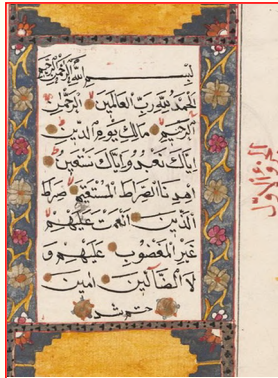 بسم الله الرحمن الرحيم
الحمد لله رب العالمين الرحمن
الرحيم مالك يوم الدين
اياك نعبد واياك نستعين
اهدنا الصراط المستقيم صراط
الذين انعمت عليهم
غير المغضوب عليهم و
لا الضالين امين
ختم شد
الجزء الاول